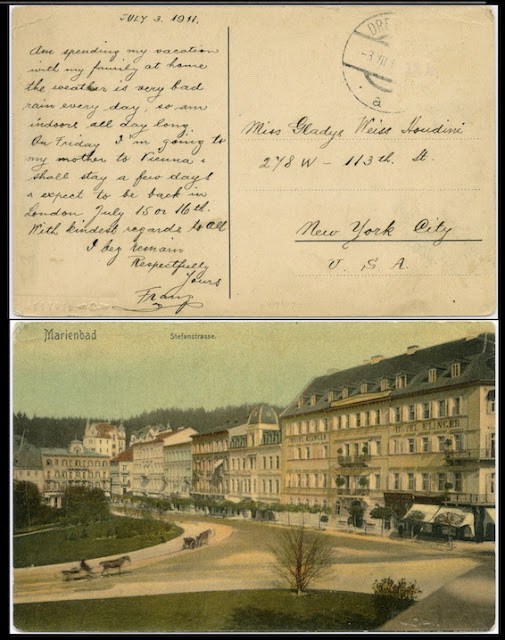 JULY 3. 1911.
Am spending my vacation
with my family at home
the weather is very bad
rain every day, so am
indoors all day long
On Friday I'm going to
my mother to Vienna &
shall stay a few days
& expect to be back in
London July 15 or 16th.
With kindest regards to all
I beg remain
Respectfully
Yours
Franz
DRE
-3.VII.1
a
Miss Gladys Weiss Houdini
278 W - 113th. St.
New York City
U. S. A.
Marienbad
Stefanstrasse.
HOTEL KLINGER
HOTEL KLINGER